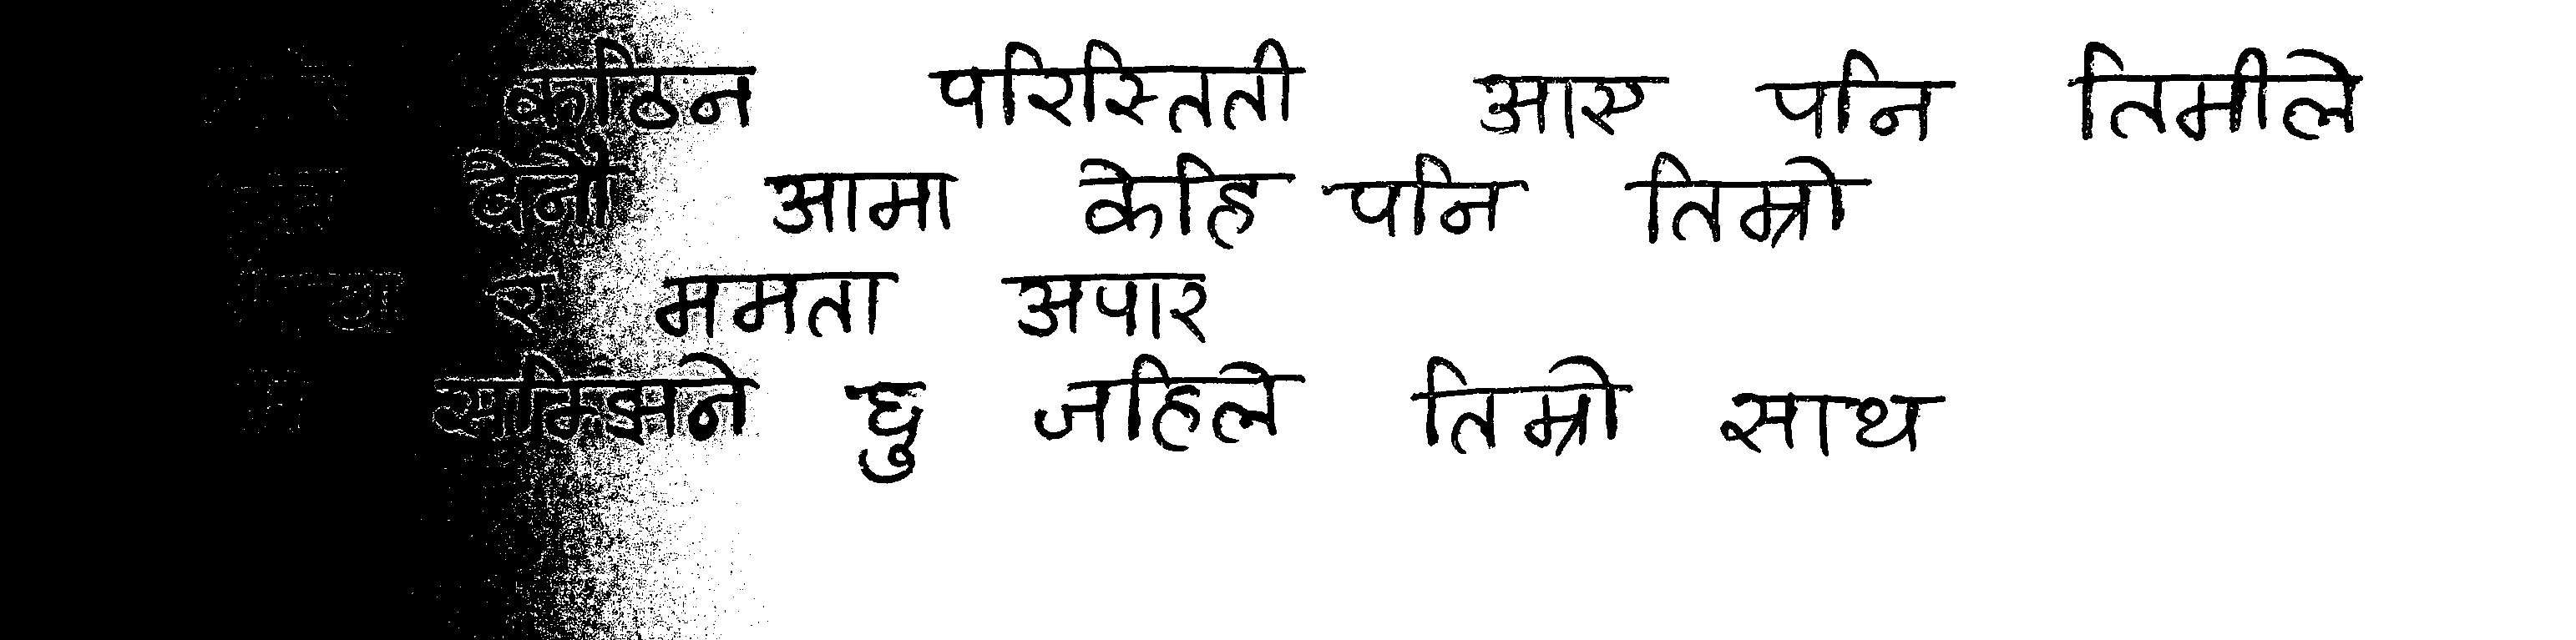 कठिन परिस्तिती आए पनि तिमीले
देनौ आमा केहि पनि तिम्रो
र ममता अपार
सम्झिने छु जहिले तिम्रो साथ